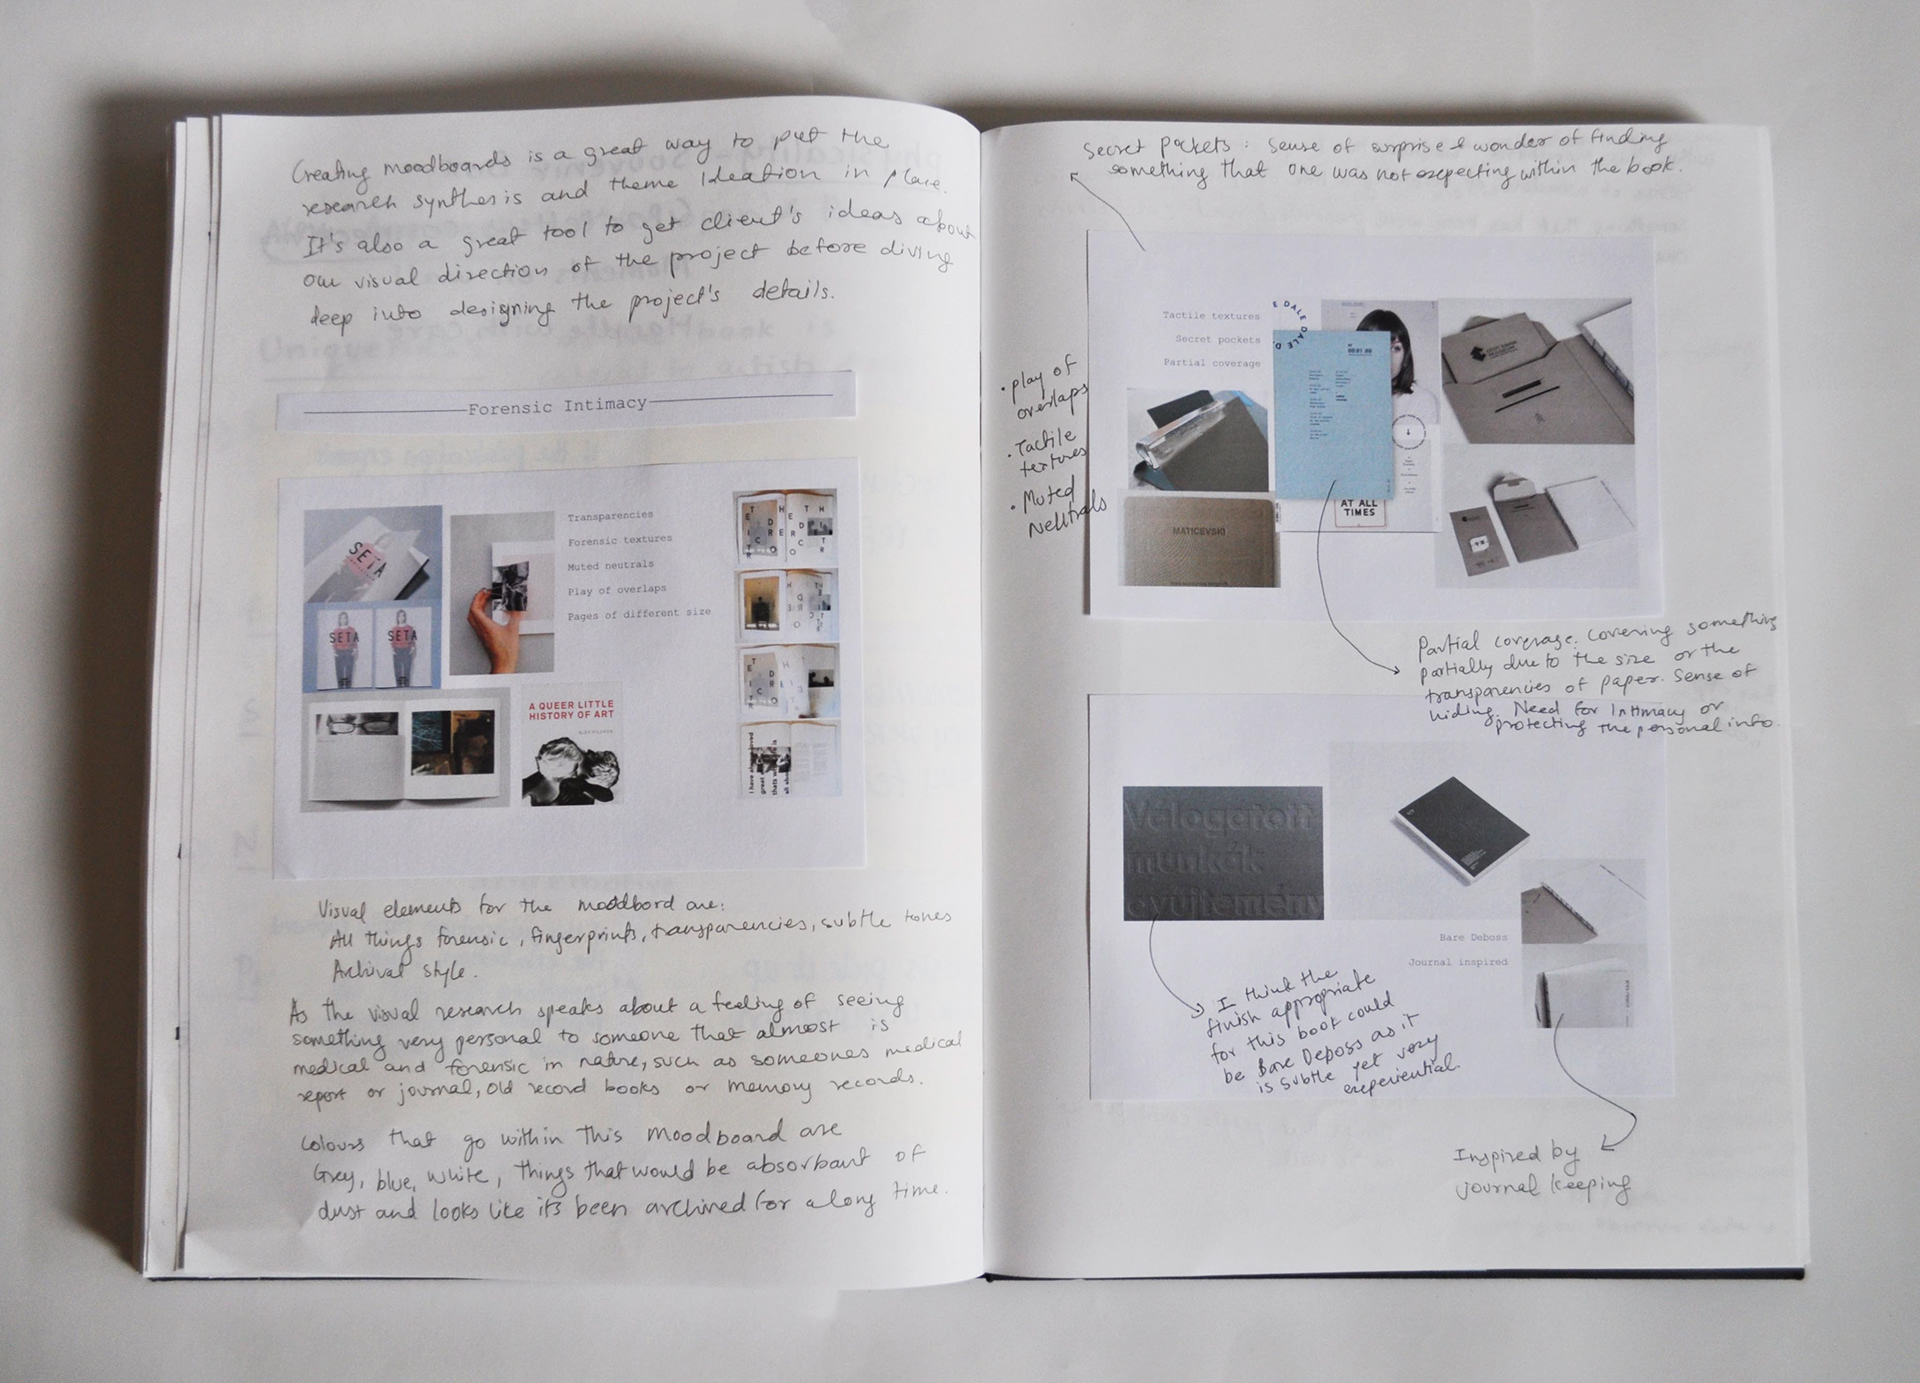 Creating moodboards is a great way to put the
research synthesis and theme Ideation in place.
It's also a great tool to get client's ideas about
our visual direction of the project before diving
deep into designing the project's details.
Forensic Intimacy
SETA
SETA
SETA
Transparencies
Forensic textures
Muted neutrals
Play of overlaps
Pages of different size
A QUEER LITTLE
HISTORY OF ART
Visual elements for the moodbord are:
All things forensic, fingerprints, transparencies, subtle tones
Archival style.
As the visual research speaks about a feeling of seeing
something very personal to someone that almost is
medical and forensic in nature, such as someones medical
report or journal, old record books or memory records.
Colours that go within this moodboard are
Grey, blue, white, things that would be absorbant of
dust and looks like its been archived for a long time.
Secret Pockets: Sense of surprise & wonder of finding
something that one was not expecting within the book.
Tactile textures
Secret pockets
Partial coverage
E DALE DALE D
AT ALL
TIMES
MATICEVSKI
• play of
overlaps
• Tactile
textures
• Muted
Neutrals
Partial coverage: Covering something
partially due to the size or the
transparencies of paper. Sense of
hiding. Need for Intimacy or
protecting the personal info.
Válogatott
munkák
gyűjtemény
Bare Deboss
Journal inspired
I think the
finish appropriate
for this book could
be Bare Deboss as it
is subtle yet very
experiential.
Inspired by
journal keeping